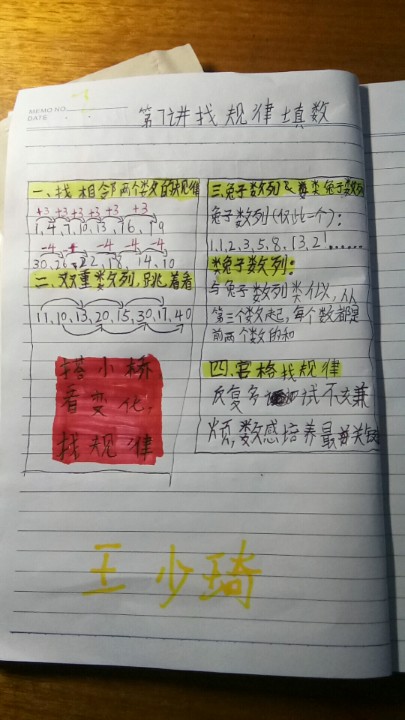 MEMO NO.
DATE
第7讲找规律填数
一、找相邻两个数的规律
+3 +3 +3 +3 +3 +3
1, 4, 7, 10, 13, 16, 19
-4 -4 -4 -4 -4
30, 26, 22, 18, 14, 10
二、双重数列,跳着看
11, 10, 13, 20, 15, 30, 17, 40
搭小桥
看变化,
找规律
三.兔子数列&类兔子数列
兔子数列(仅此一个):
1,1,2,3,5,8,13,21……
类兔子数列:
与兔子数列类似,从
第三个数起,每个数都是
前两个数的和
四.宫格找规律
反复多 试不文兼
烦,数感培养最关键
王少琦